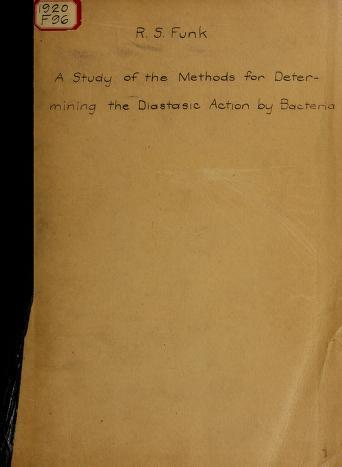 1920
F96
R. S. Funk
A Study of the Methods for Deter-
mining the Diastasic Action by Bacteria